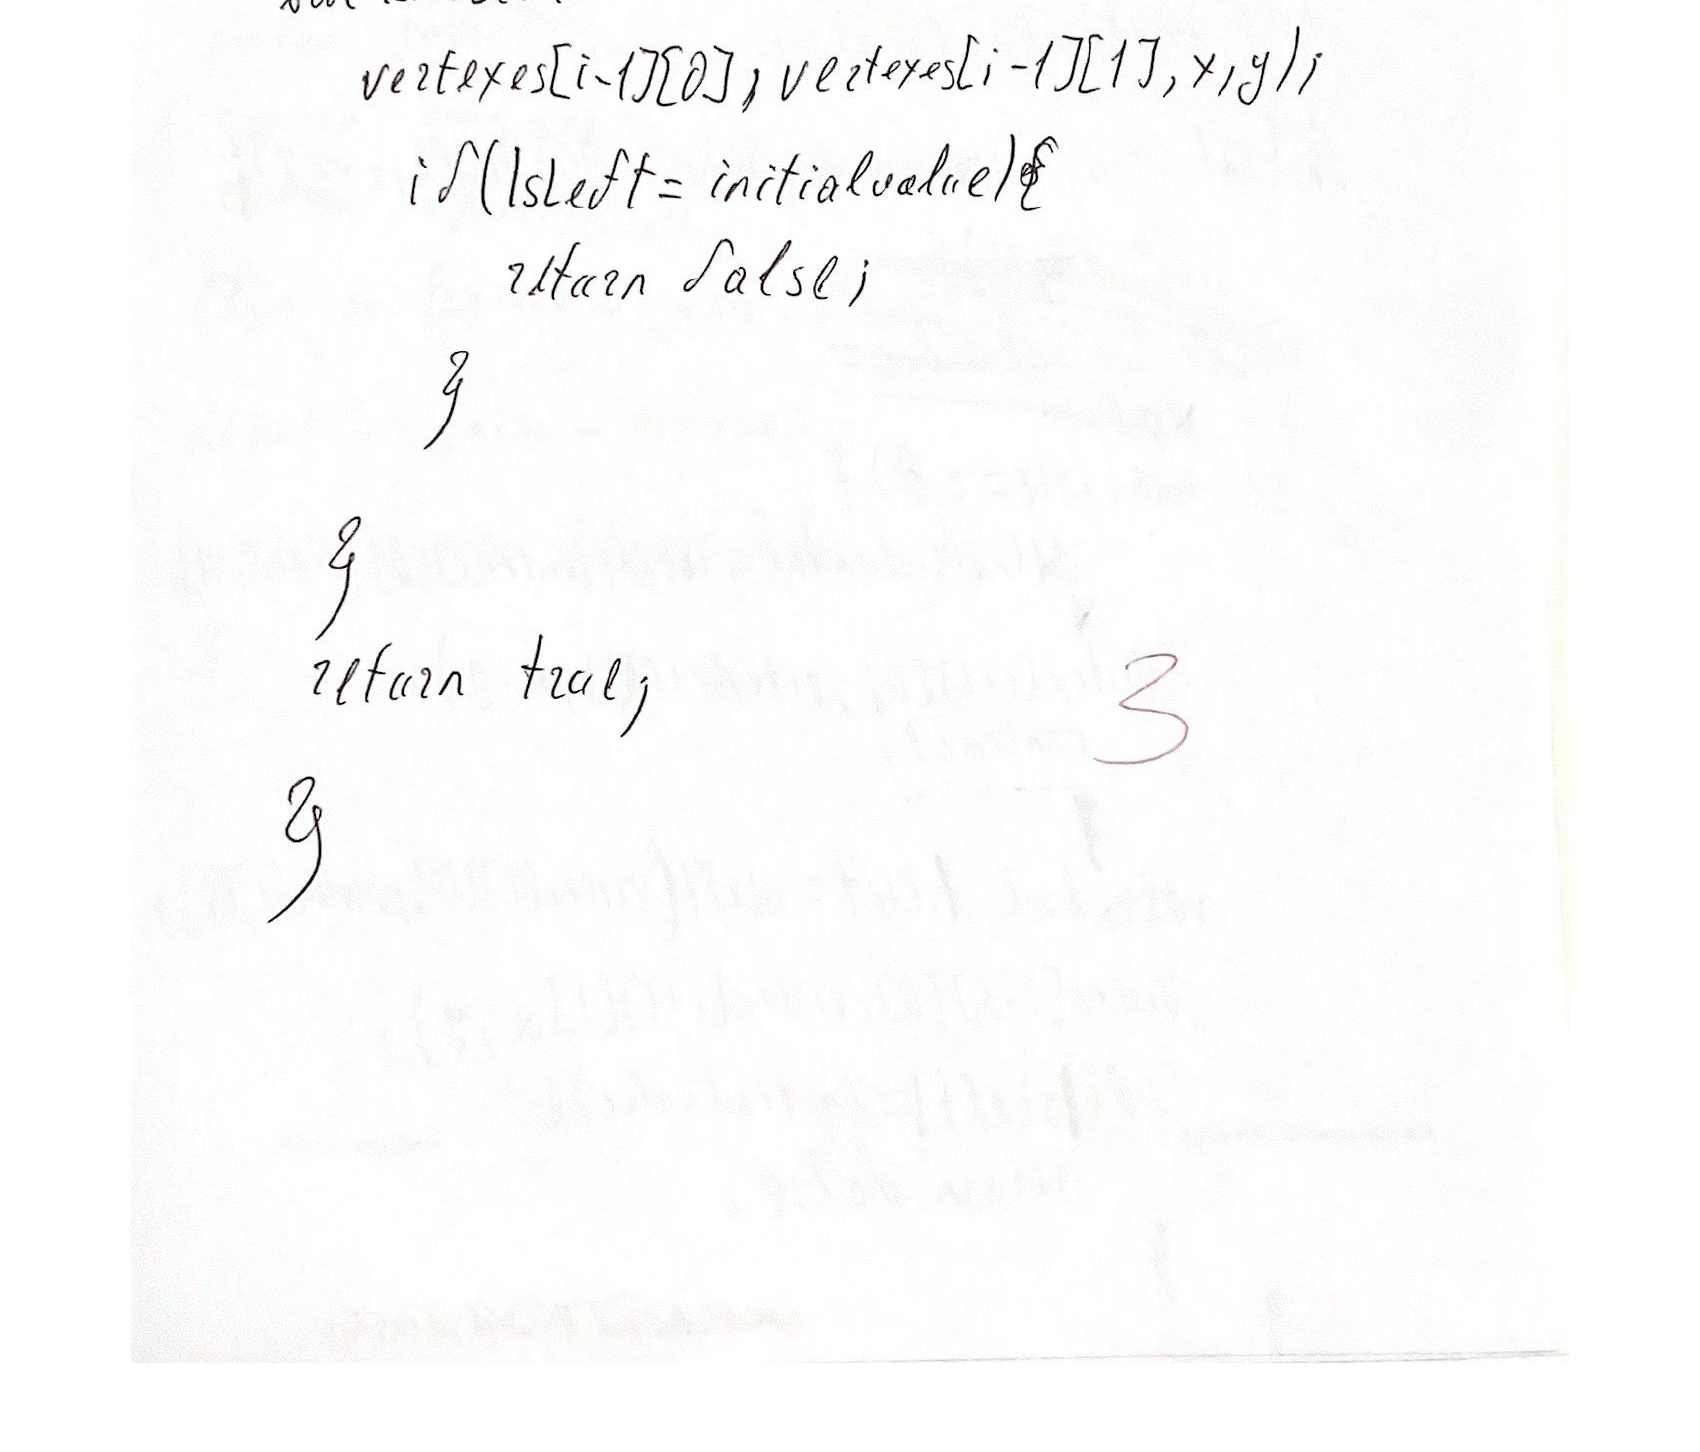 vertexes[i-1][0], vertexes[i-1][1], x, y);
if(IsLeft = initialvalue){
return false;
}
}
return true;
3
}